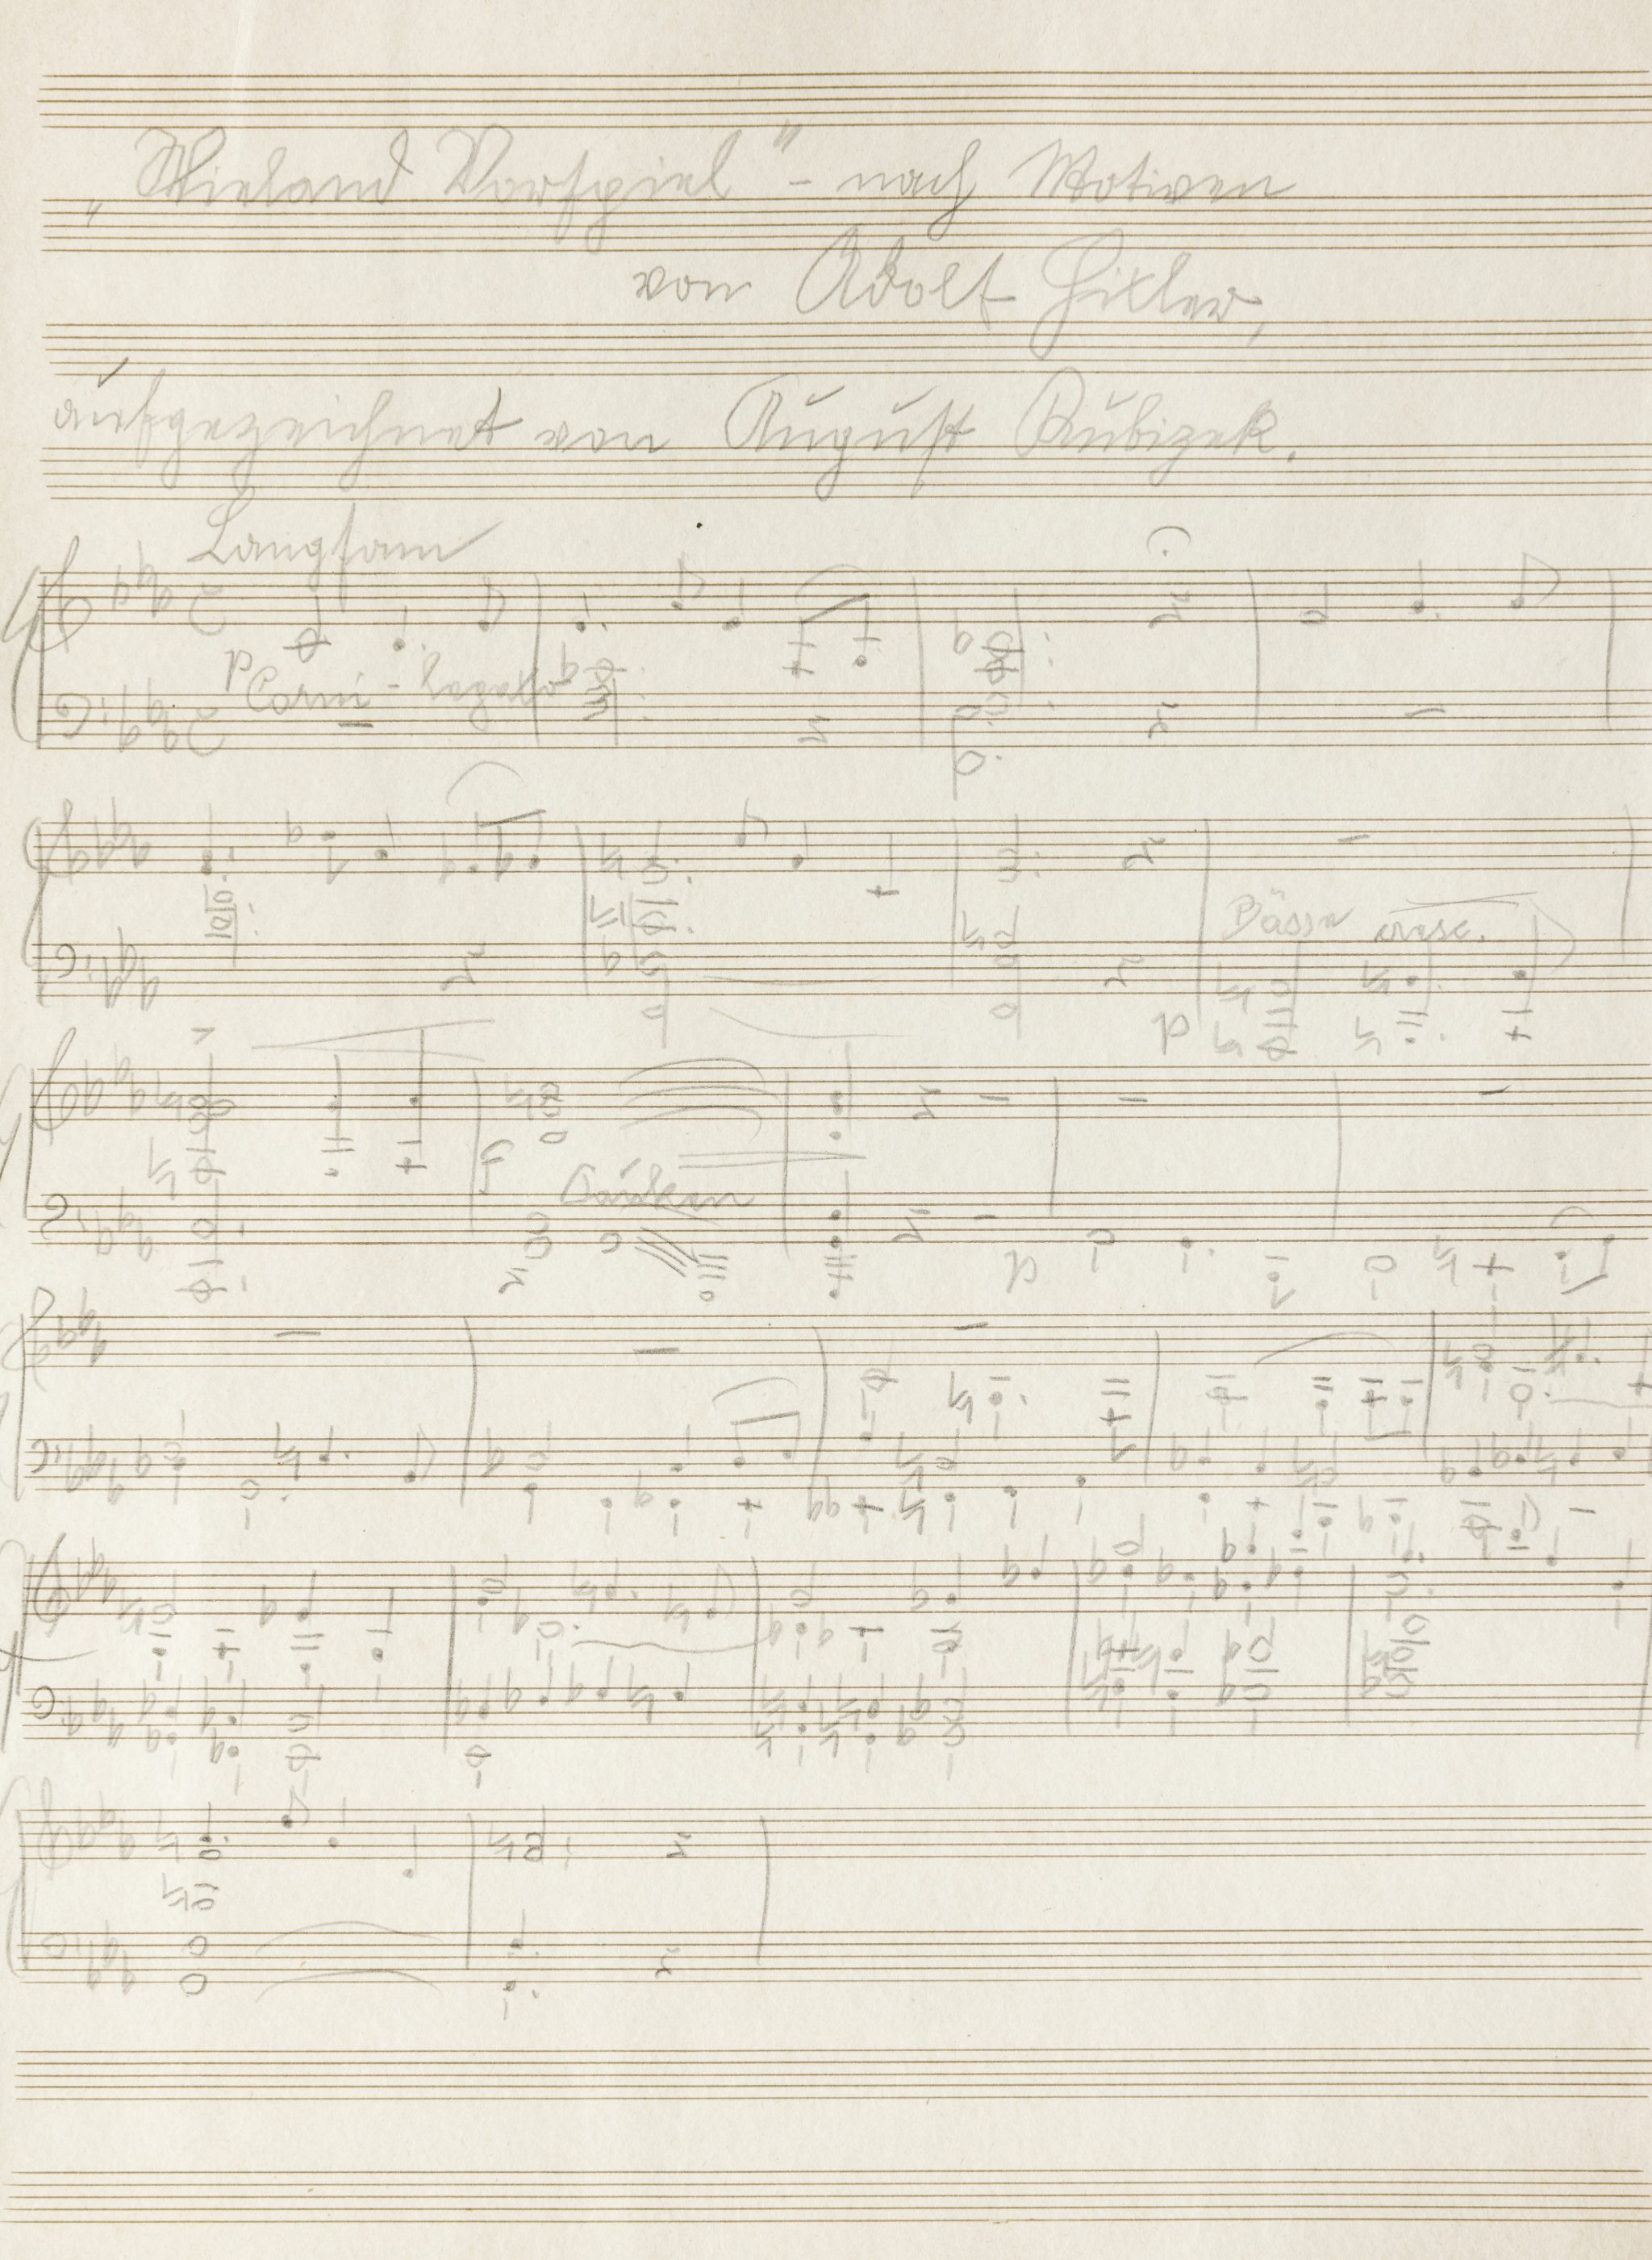 „Wieland Vorspiel" - nach Motiven
von Adolf Hitler,
aufgezeichnet von August Kubizek.
Langsam
p Corni - legato
Bässe cresc.
p
Pauken
p